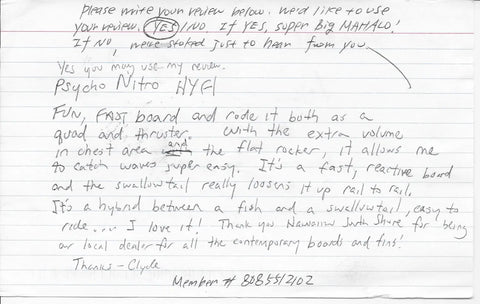 please write your review below. we'd like to use
your review. YES / NO. If YES, super Big MAHALO!
If NO, we're stoked just to hear from you
Yes you may use my review.
Psycho Nitro HYFI
FUN, FAST board and rode it both as a
quad and thruster. With the extra volume
in chest area and the flat rocker, it allows me
to catch waves super easy. It's a fast, reactive board
and the swallowtail really loosens it up rail to rail.
It's a hybrid between a fish and a swallowtail, easy to
ride... I love it! Thank you Hawaiian South Shore for being
our local dealer for all the contemporary boards and fins!
Thanks - Clyde
Member # 8085512102